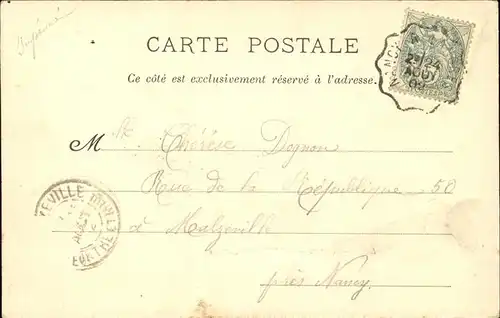 Imprimé
CARTE POSTALE
Ce côté est exclusivement réservé à l'adresse.
NANCY
24
AOUT
02
Mlle Thérèse Dognon
Rue de la République 50
à Malzéville
près Nancy.